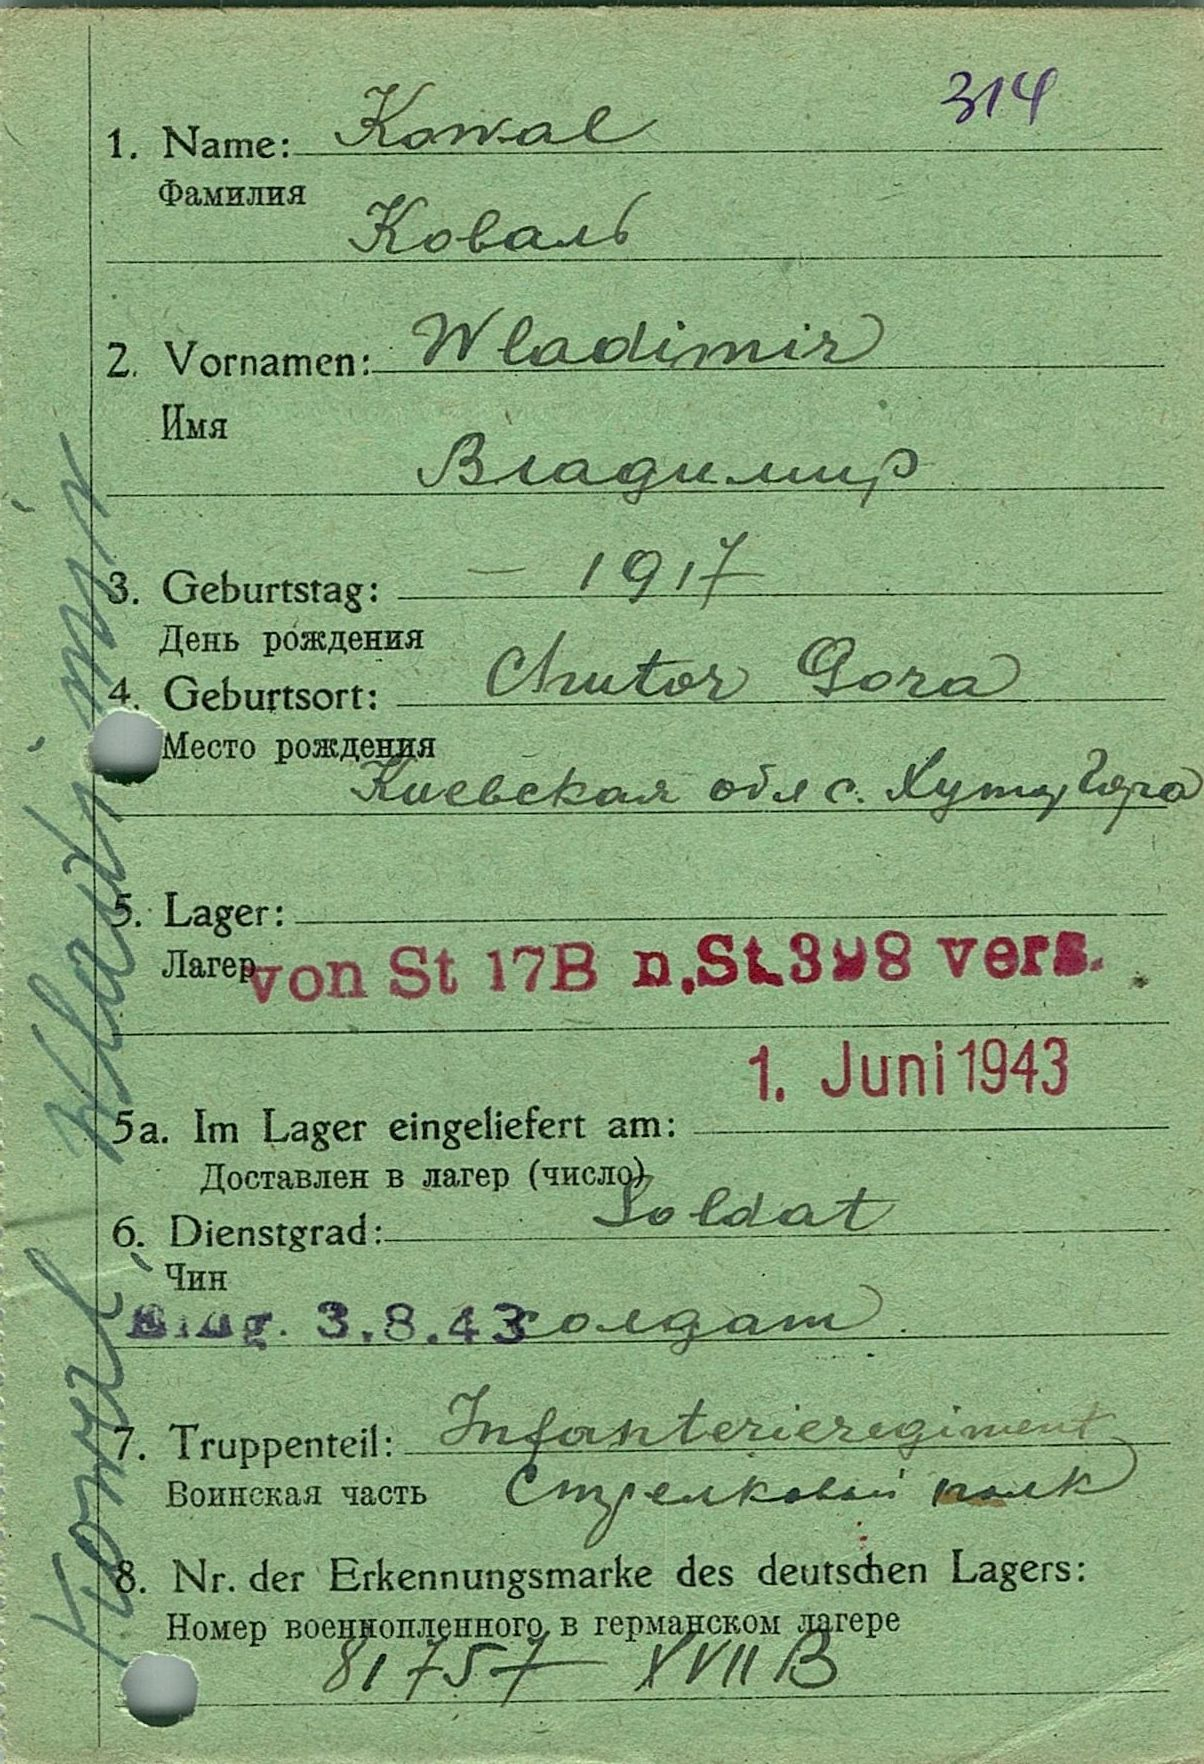 314
1. Name: Kowal
Фамилия
Коваль
2. Vornamen: Wladimir
Имя
Владимир
3. Geburtstag: – 1917
День рождения
4. Geburtsort: Chutor Gora
Место рождения
Киевская обл с. Хутор Гора
5. Lager:
Лагер von St 17B n. St. 398 vers.
1. Juni 1943
5a. Im Lager eingeliefert am:
Доставлен в лагер (число)
6. Dienstgrad: Soldat
Чин
3.8.43 солдат.
7. Truppenteil: Infanterieregiment
Воинская часть Стрелковый полк
8. Nr. der Erkennungsmarke des deutschen Lagers:
Номер военнопленного в германском лагере
81757 XVII B
Kowal, Wladimir